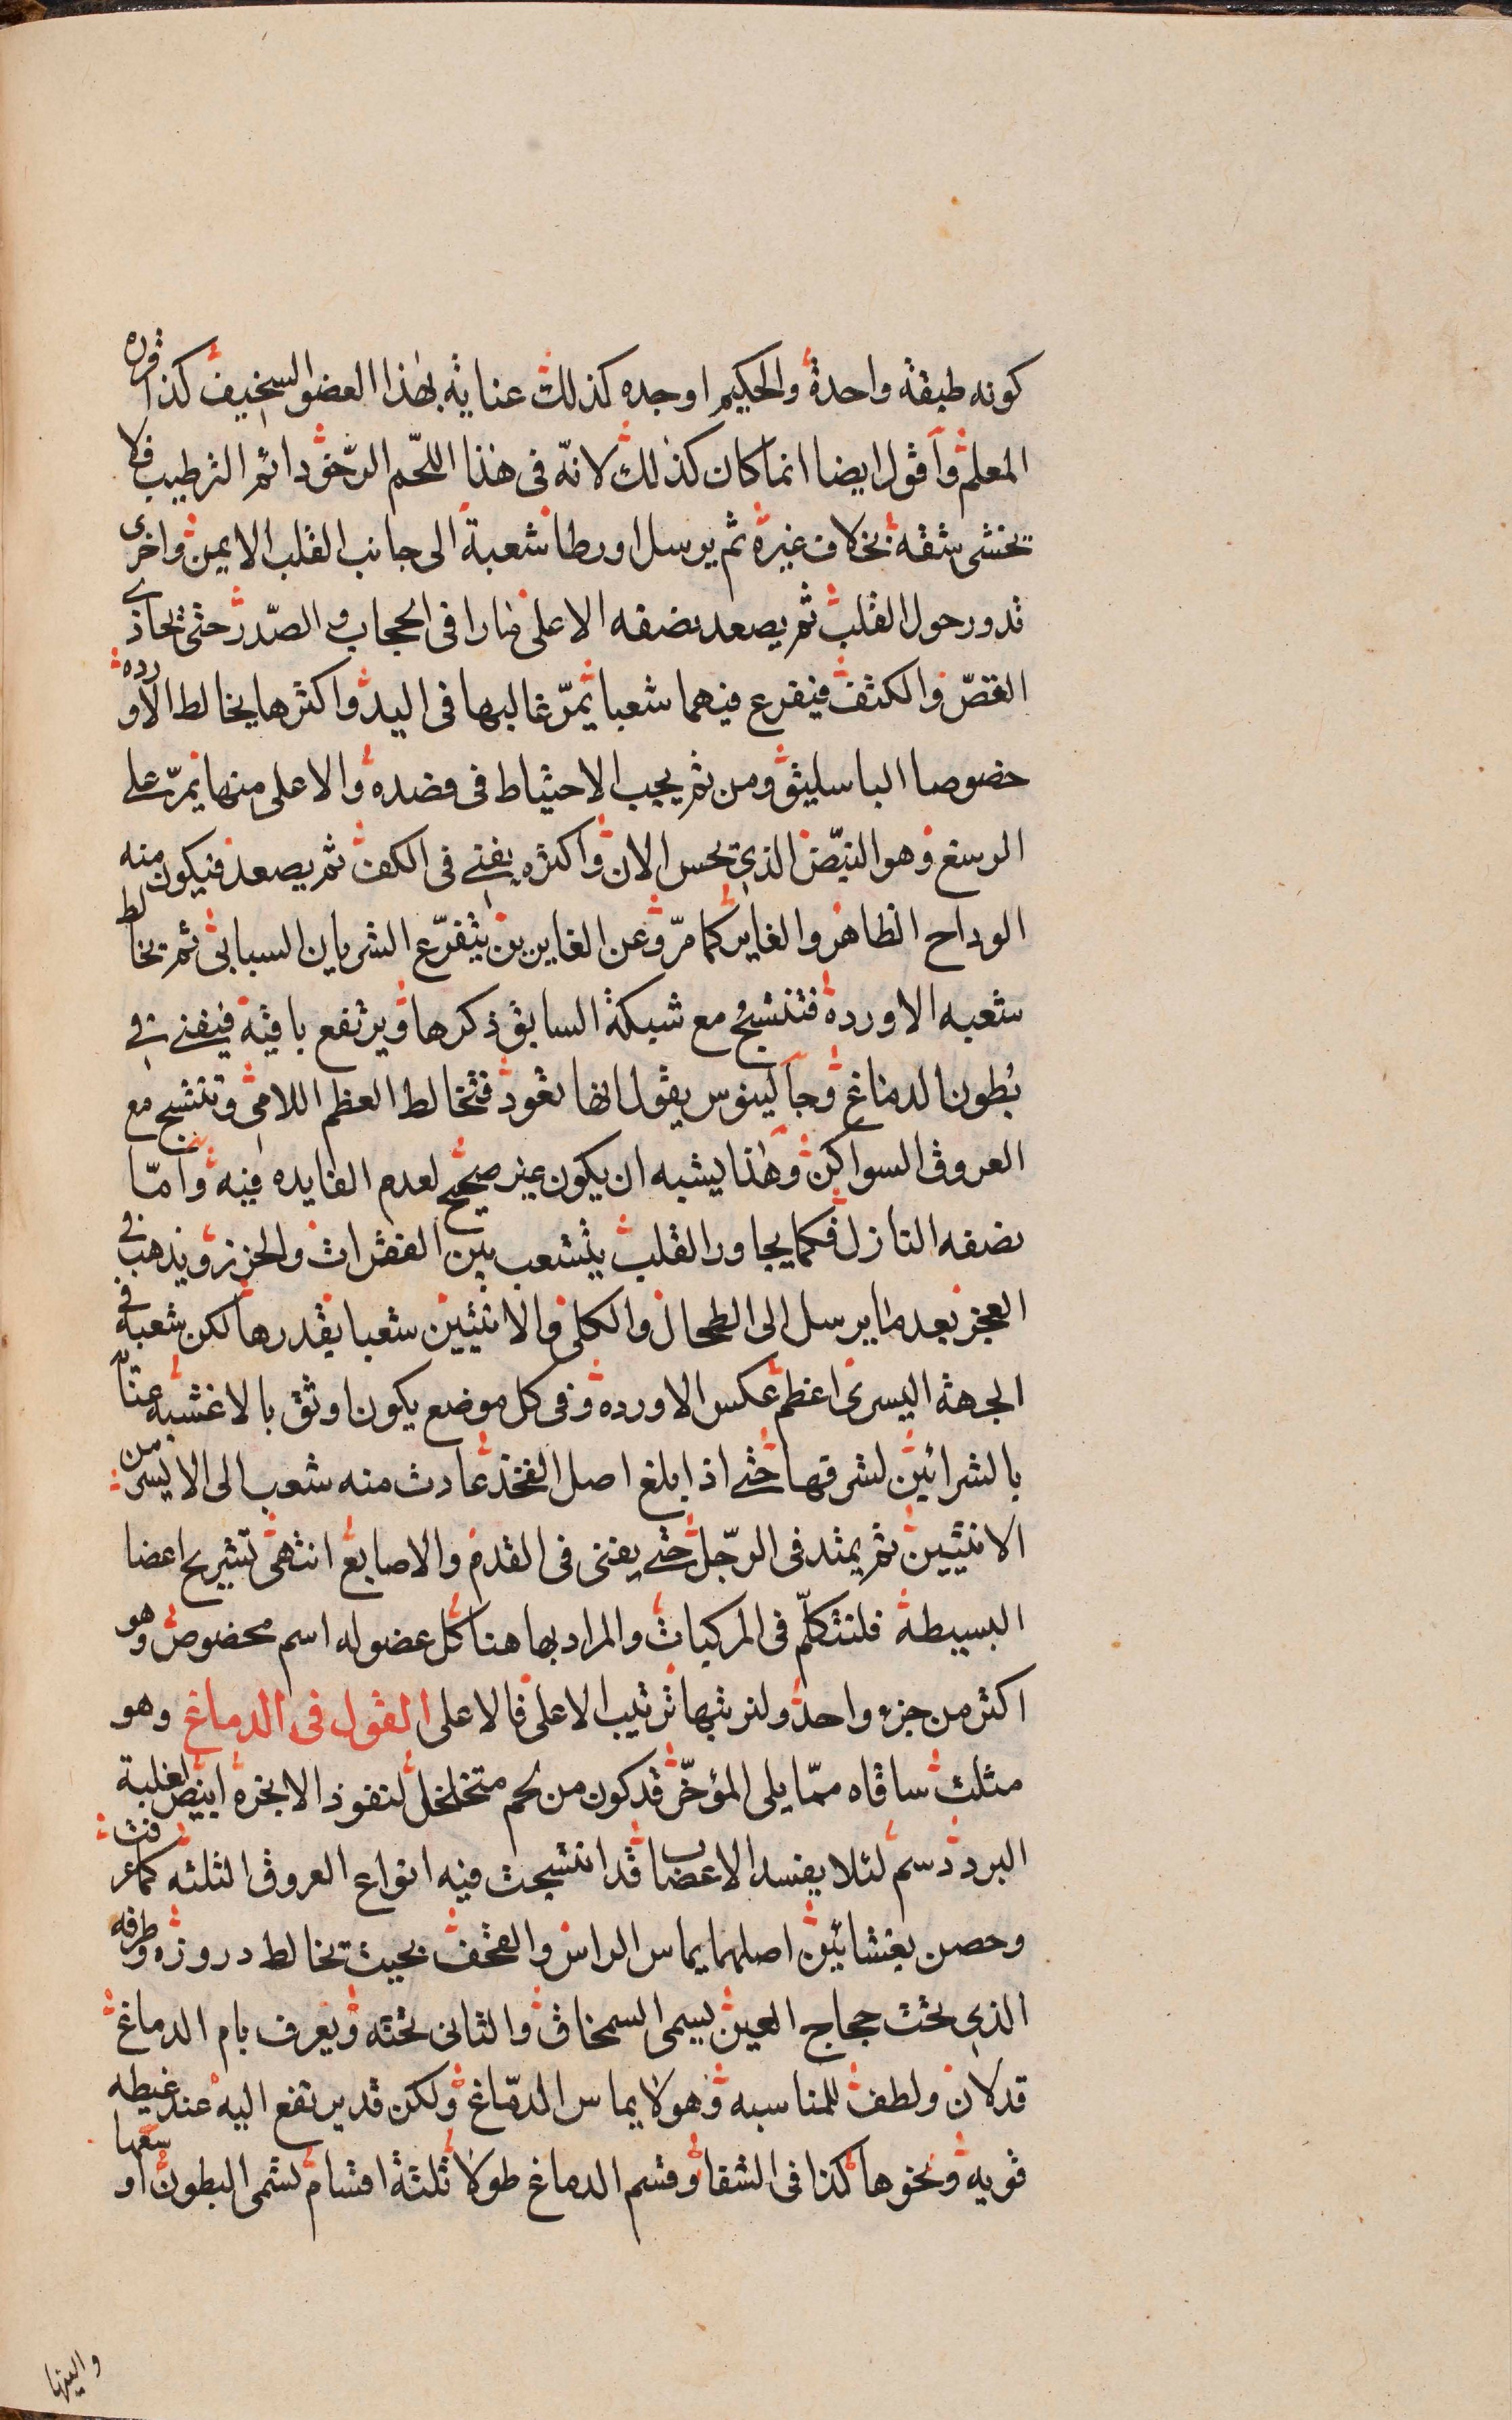 كونه طبقة واحدة والحكيم اوجده كذلك عناية بهذا العضو السخيف كذا قرره
المعلم واقول ايضا انما كان كذلك لانّه فى هذا اللحّم الرّخو دائم الترطيب فلا
تخشى شقه بخلاف غيره ثم يرسل اورطا شعبة الى جانب القلب الايمن واخرى
تدور حول القلب ثم يصعد نصفه الاعلى مارا فى الحجاب و الصّدر حتى تحاذى
القصّ والكتف فيفرع فيهما شعبا تمرّ غالبها فى اليد واكثرها يخالط الاوردة
خصوصا الباسليق ومن ثم يجب الاحتياط فى فصده والاعلى منها تمرّ على
الرسغ وهو النبّض الذى يحس الان واكثره يفنى فى الكف ثم يصعد فيكون منه
الوداج الظاهر والغاير كما مرّ وعن الغايرين يتفرّع الشريان السباتى ثم تخالط
شعبه الاورده فتنتسج مع شبكة السابق ذكرها ويرتفع باقيه فيفنى فى
بُطون الدماغ وجالينوس يقول انها تعود فتخالط العظم اللامى وتنتسج مع
العروق السواكن وهذا يشبه ان يكون غير صحيح لعدم الفايده فيه وامّا
نصفه النازل فكما يجاور القلب يتشعب بين الفقرات والخرز ويذهب فى
العجز بعد ما يرسل الى الطحال والكلى والانثيين شعبا بقدرها لكن شعبه فى
الجهة اليسرى اعظم عكس الاورده وفى كل موضع يكون اوثق بالاغشيه عناية
بالشرائين لشرقها حتى اذا بلغ اصل الفخذ عادت منه شعب الى الايسر من
الانثيين ثم يمتد فى الرّجل حتى يفنى فى القدم والاصابع انتهى تشريح اعضا
البسيطة فلنتكلّم فى المركبات والمراد بها هنا كل عضو له اسم مخصوص وهو
اكثر من جزء واحد ولنرتبها ترتيب الاعلى فالاعلى القول فى الدماغ وهو
مثلث ساقاه ممّا يلى المؤخّر قد كون من لحم متخلخل لنفوذ الابخره ابيض لغلبة
البرد دسم لئلا يفسد الاعصاب قد انتسجت فيه انواع العروق الثلثه كما عرفت
وحصن بغشائين اصلهما يماس الراس والقحف بحيث تخالط دروزه وطرفه
الذى تحت حجاج العين يسمى السمحاق والثانى تحته ويعرف بام الدماغ
قد لان ولطف للمناسبه وهو لا يماس الدمّاغ ولكن قد يرتفع اليه عند غيطه
قويه ونحوها كذا فى الشفا وقسم الدماغ طولا ثلثة اقسام تسمى البطون اوسعها
واليها